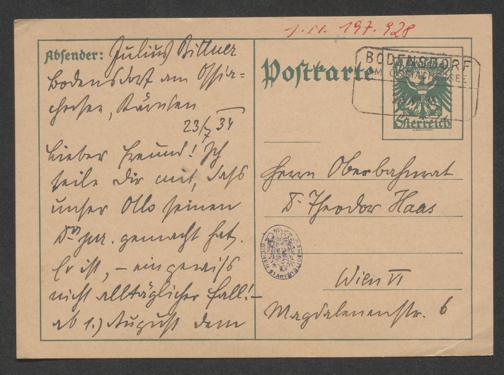 1.N. 197.928
Absender: Julius Bittner
Bodensdorf am Ossia-
chersee, Kärnten
23/7 34
Lieber Freund! Ich
teile Dir mit, daß
unser Otto seinen
Dr jur. gemacht hat.
Er ist, – ein gewiß
nicht alltäglicher Fall! –
ab 1.) August dem
Postkarte
BODENSDORF
AM OSSIACHERSEE
Österreich
Herrn Oberbahnrat
Dr Theodor Haas
Wien VI
Magdalenenstr. 6